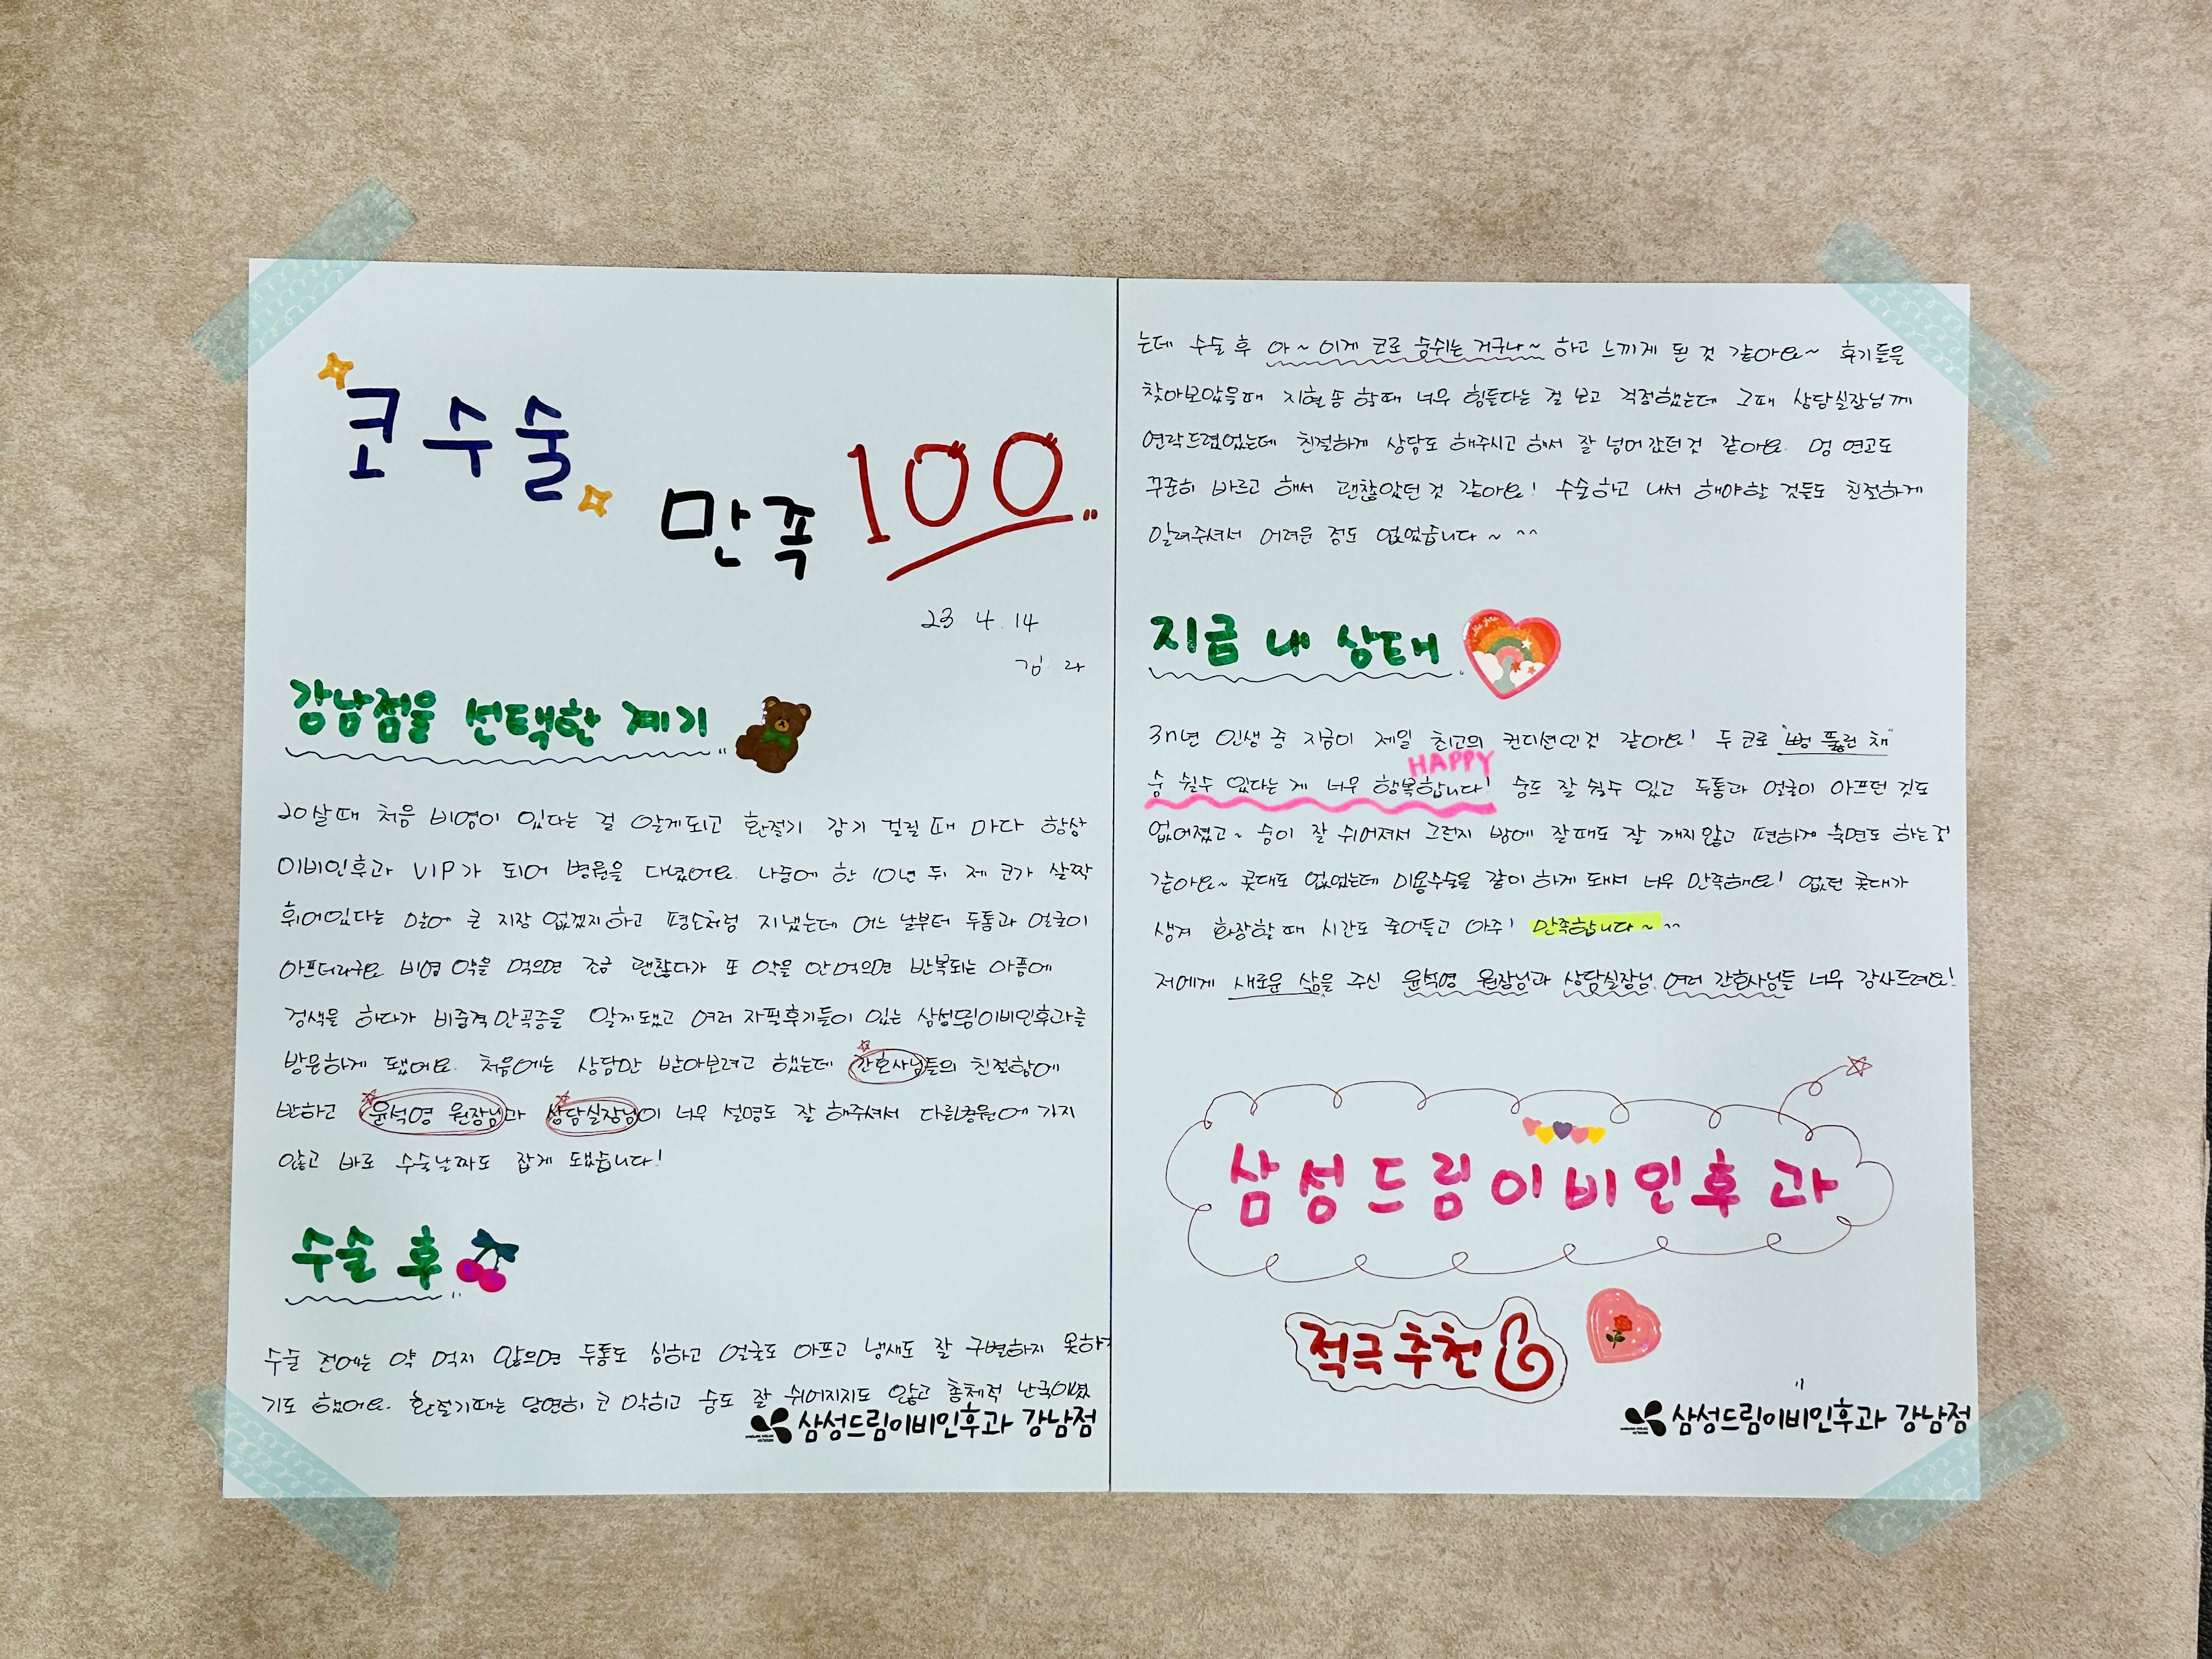 코수술
만족 100
23. 4. 14
김 라
강남점을 선택한 계기
20살때 처음 비염이 있다는 걸 알게되고 환절기 감기 걸릴 때 마다 항상
이비인후과 VIP가 되어 병원을 다녔어요. 나중에 한 10년 뒤 제 코가 살짝
휘어있다는 말에 큰 지장 없겠지하고 평소처럼 지냈는데 어느 날부터 두통과 얼굴이
아프더라구요 비염 약을 먹으면 조금 괜찮다가 또 약을 안먹으면 반복되는 아픔에
검색을 하다가 비중격만곡증을 알게됐고 여러 자필후기들이 있는 삼성드림이비인후과를
방문하게 됐어요. 처음에는 상담만 받아보려고 했는데 간호사님들의 친절함에
반하고 윤석영 원장님과 상담실장님이 너무 설명도 잘 해주셔서 다른병원에 가지
않고 바로 수술날짜도 잡게 됐습니다!
수술 후
수술 전에는 약 먹지 않으면 두통도 심하고 얼굴도 아프고 냄새도 잘 구별하지 못하
기도 했어요. 환절기때는 당연히 코 막히고 숨도 잘 쉬어지지도 않고 총체적 난국이였
삼성드림이비인후과 강남점
는데 수술 후 아~ 이게 코로 숨쉬는 거구나~ 하고 느끼게 된 것 같아요~ 후기들을
찾아보았을때 지혈솜 할때 너무 힘들다는 걸 보고 걱정했는데 그때 상담실장님께
연락드렸었는데 친절하게 상담도 해주시고 해서 잘 넘어갔던것 같아요. 멍 연고도
꾸준히 바르고 해서 괜찮았던 것 같아요! 수술하고 나서 해야할 것들도 친절하게
알려주셔서 어려운 점도 없었습니다~ ^^
지금 내 상태
3n년 인생 중 지금이 제일 최고의 컨디션인것 같아요! 두 코로 "뻥 뚫린 채"
HAPPY
숨 쉴수 있다는 게 너무 행복합니다! 숨도 잘 쉴수 있고 두통과 얼굴이 아프던 것도
없어졌고~ 숨이 잘 쉬어져서 그런지 밤에 잘때도 잘 깨지않고 편하게 숙면도 하는것
같아요~ 콧대도 없었는데 미용수술을 같이 하게 돼서 너무 만족해요! 없던 콧대가
생겨 화장할 때 시간도 줄어들고 아주! 만족합니다~ ^^
저에게 새로운 삶을 주신 윤석영 원장님과 상담실장님, 여러 간호사님들 너무 감사드려요!
삼성드림이비인후과
적극추천
삼성드림이비인후과 강남점